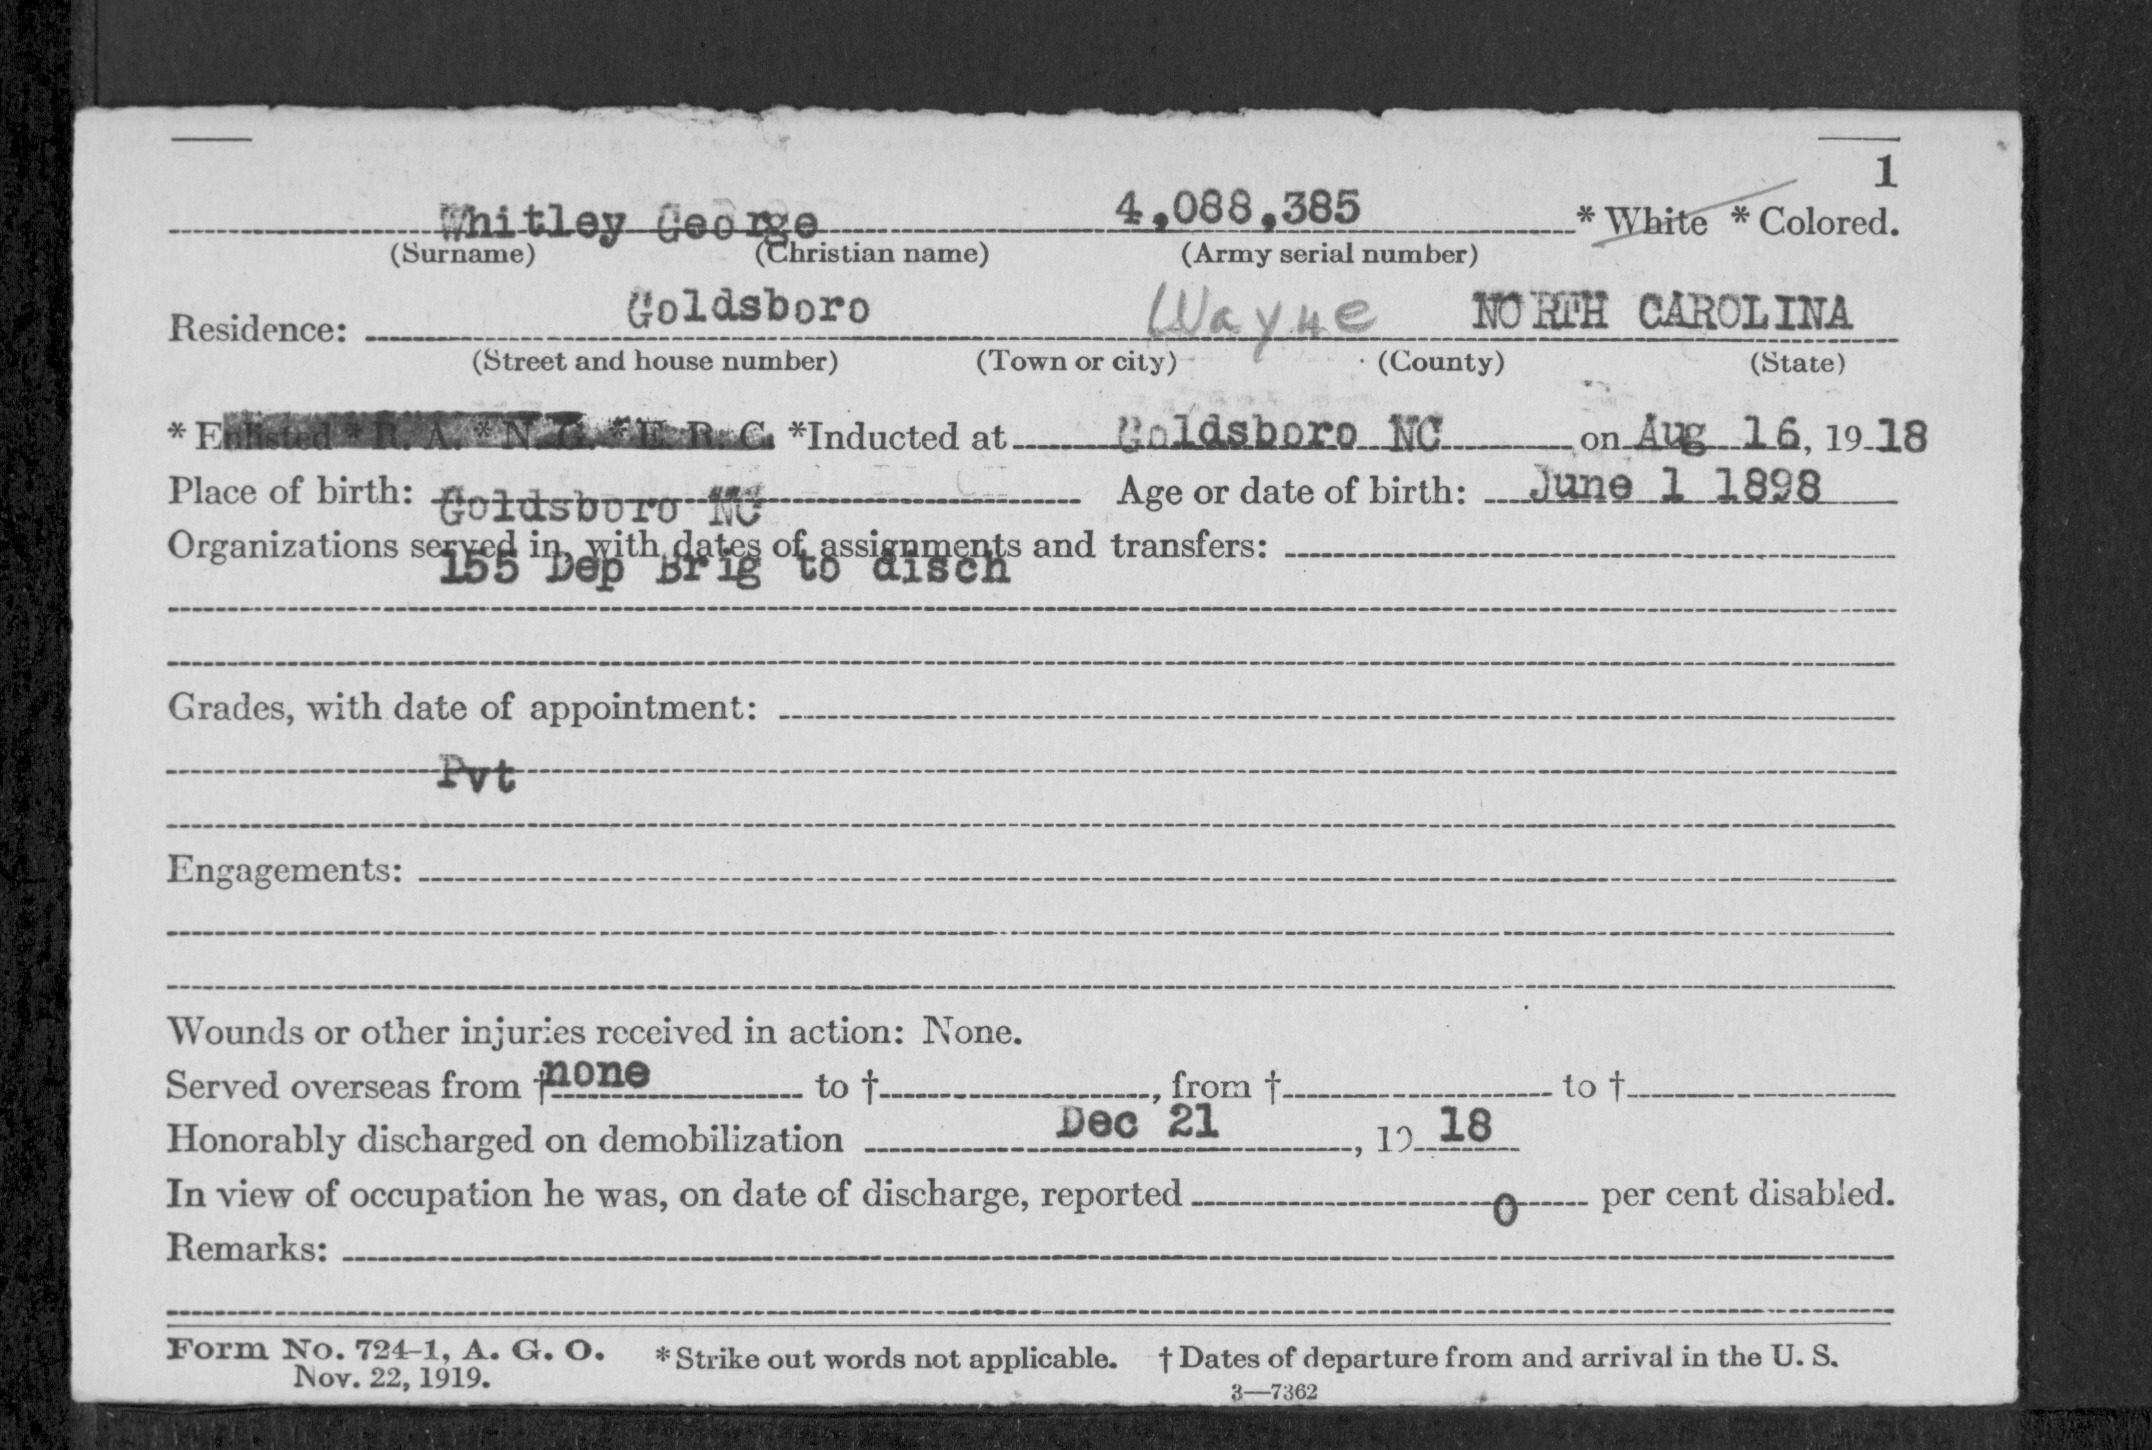 1
Whitley George 4,088,385 * White * Colored.
(Surname) (Christian name) (Army serial number)
Residence: Goldsboro Wayne NORTH CAROLINA
(Street and house number) (Town or city) (County) (State)
* Enlisted * R. A. * N. G. * E. R. C. *Inducted at Goldsboro NC on Aug 16, 19 18
Place of birth: Goldsboro NC Age or date of birth: June 1 1898
Organizations served in, with dates of assignments and transfers:
155 Dep Brig to disch
Grades, with date of appointment:
Pvt
Engagements:
Wounds or other injuries received in action: None.
Served overseas from † none to †, from † to †
Honorably discharged on demobilization Dec 21, 19 18
In view of occupation he was, on date of discharge, reported 0 per cent disabled.
Remarks:
Form No. 724-1, A. G. O. * Strike out words not applicable. † Dates of departure from and arrival in the U. S.
Nov. 22, 1919.
3—7362